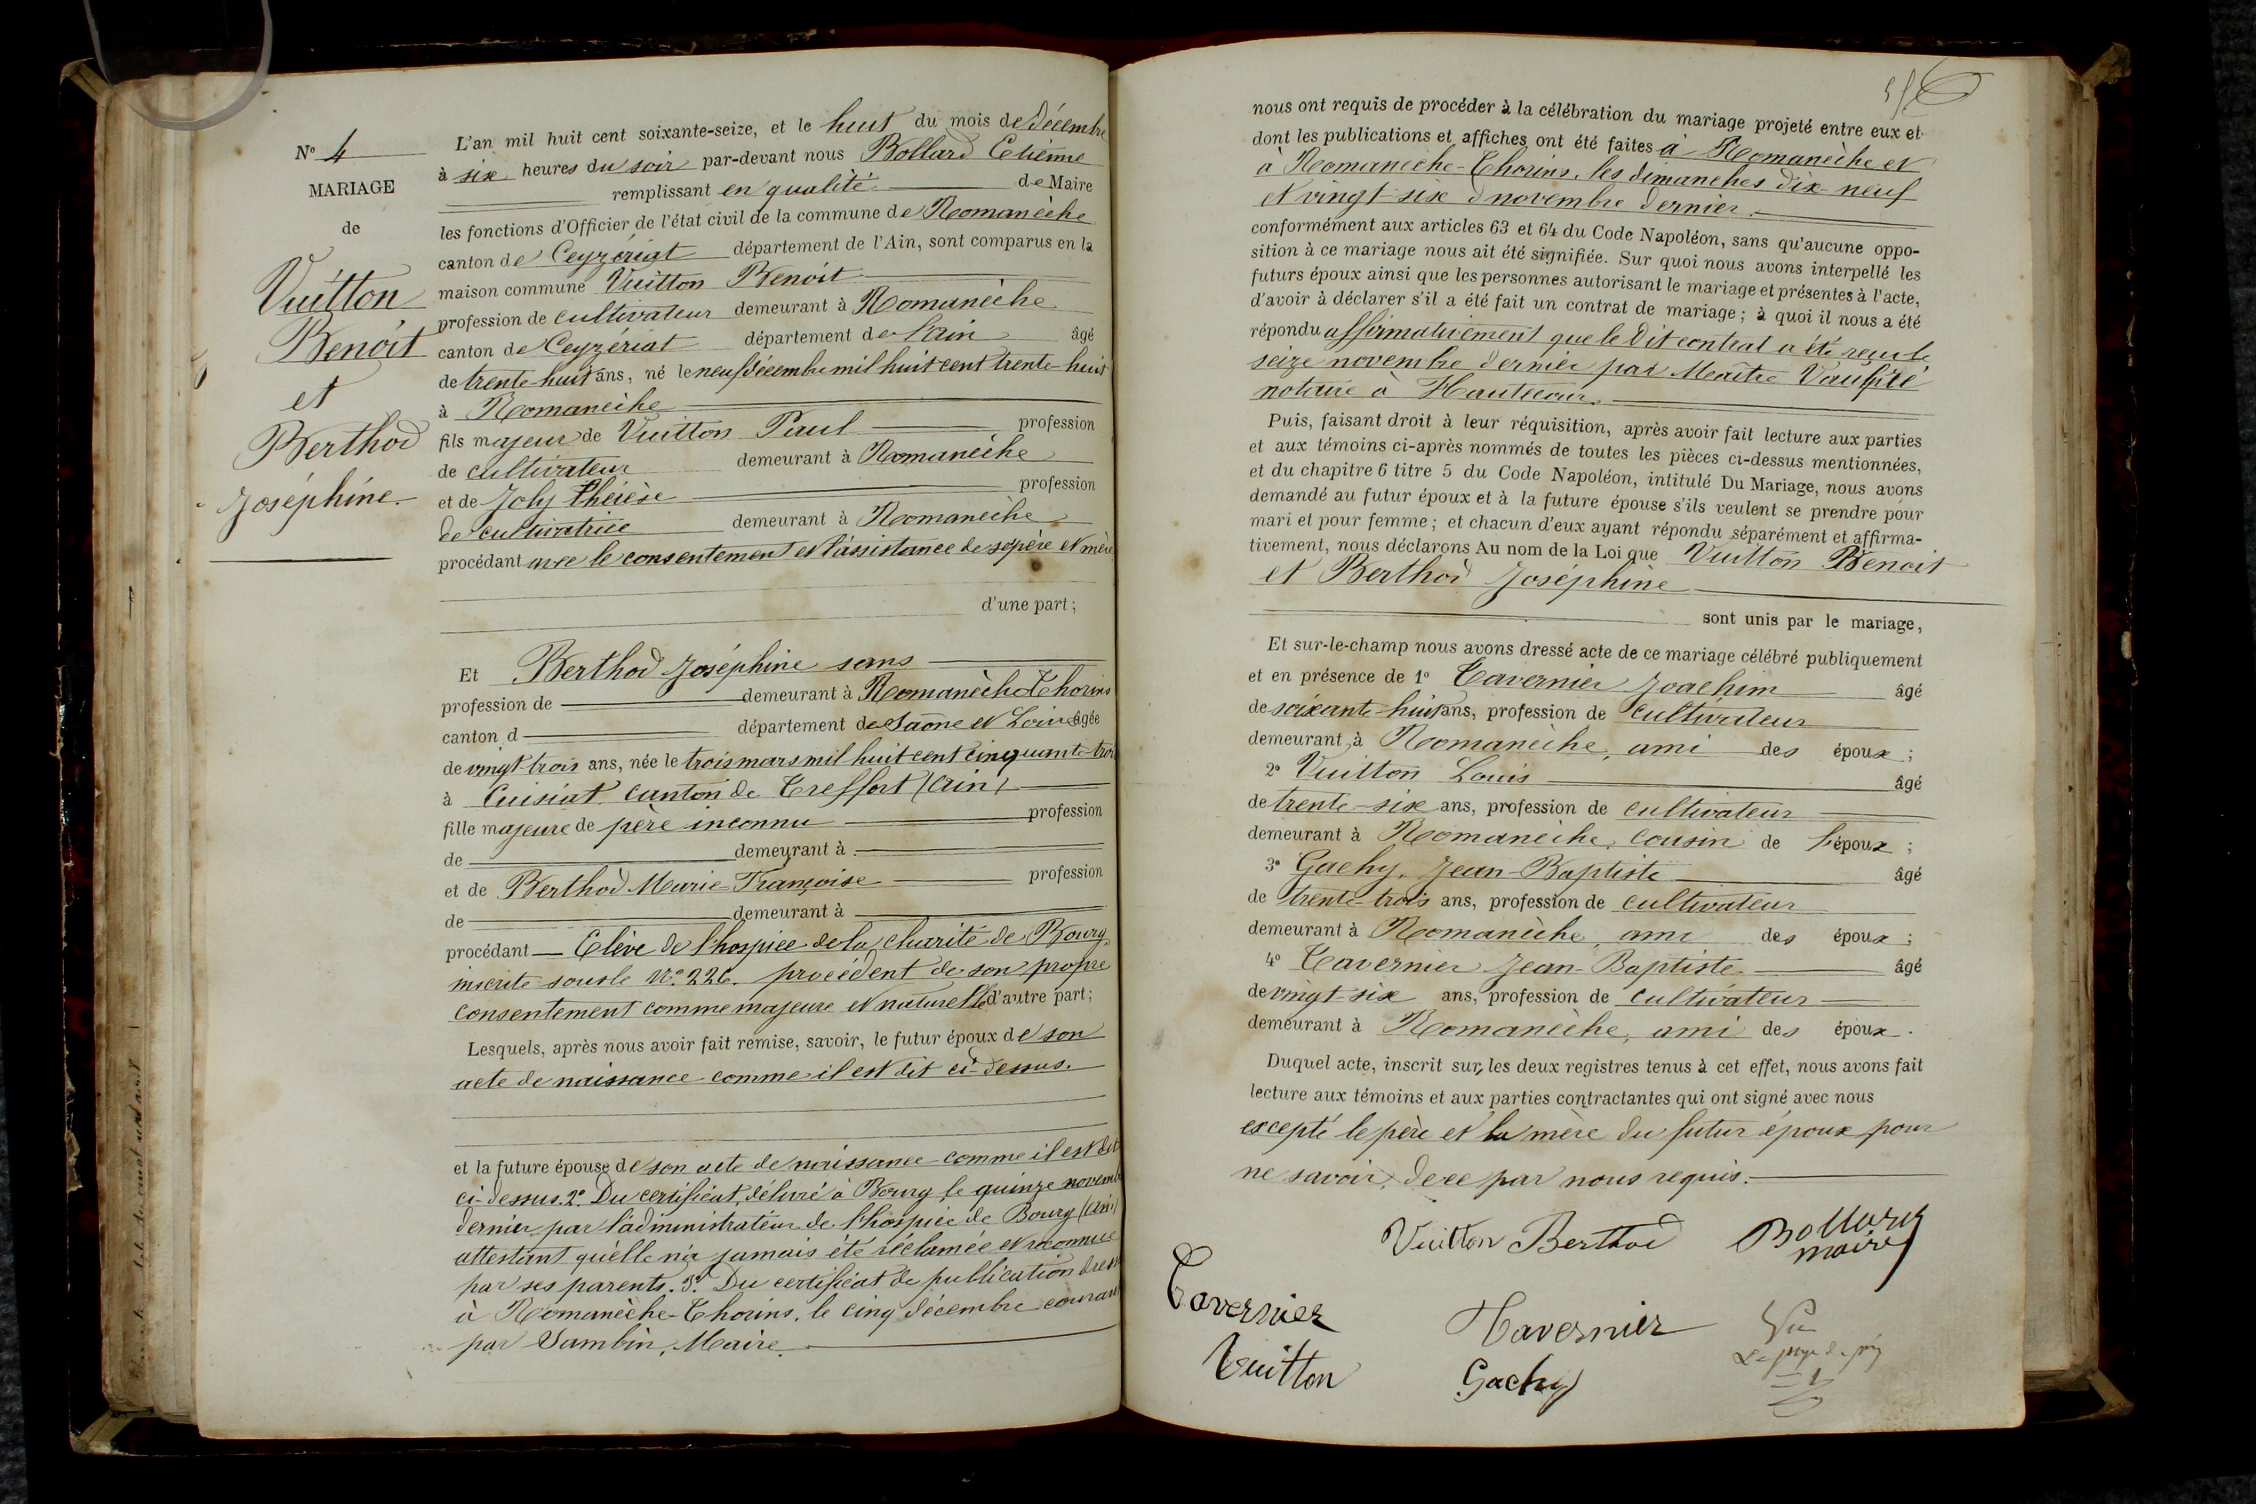 N° 4
MARIAGE
de
Vuitton
Benoit
et
Berthod
Joséphine
L'an mil huit cent soixante-seize, et le huit du mois de décembre
à six heures du soir par-devant nous Bollard Etienne
remplissant en qualité de Maire
les fonctions d'Officier de l'état civil de la commune de Romanèche
canton de Ceyzériat département de l'Ain, sont comparus en la
maison commune Vuitton Benoit
profession de cultivateur demeurant à Romanèche
canton de Ceyzériat département de l'ain âgé
de trente-huit ans, né le neuf décembre mil huit cent trente-huit
à Romanèche
fils majeur de Vuitton Paul profession
de cultivateur demeurant à Romanèche
et de Joly Thérèse profession
de cultivatrice demeurant à Romanèche
procédant avec le consentement et l'assistance de se père et mère
d'une part;
Et Berthod Joséphine sans
profession de demeurant à Romanèche Thorins
canton d département de Saône et Loire âgée
de vingt-trois ans, née le trois mars mil huit cent cinquante-trois
à Cuisiat canton de Treffort (Ain)
fille majeure de père inconnu profession
de demeurant à
et de Berthod Marie-Françoise profession
de demeurant à
procédant Elève de l'hospice de la charité de Bourg
inscrite sous le N° 226. procédent de son propre
consentement comme majeure et naturelle d'autre part;
Lesquels, après nous avoir fait remise, savoir, le futur époux de son
acte de naissance comme il est dit ci-dessus.
et la future épouse de son acte de naissance comme il est dit
ci-dessus. 2° Du certificat délivré à Bourg le quinze novemb
dernier par l'administrateur de l'hospice de Bourg (Ain)
attestant qu'elle n'a jamais été réclamée et reconnue
par ses parents. 3° Du certificat de publication dressé
à Romanèche-Thorins, le cinq décembre courant
par Sambin, Maire.
nous ont requis de procéder à la célébration du mariage projeté entre eux et
dont les publications et affiches ont été faites à Romanèche et
à Romanèche-Thorins, les dimanches dix-neuf
et vingt-six d novembre dernier.
conformément aux articles 63 et 64 du Code Napoléon, sans qu'aucune oppo-
sition à ce mariage nous ait été signifiée. Sur quoi nous avons interpellé les
futurs époux ainsi que les personnes autorisant le mariage et présentes à l'acte,
d'avoir à déclarer s'il a été fait un contrat de mariage; à quoi il nous a été
répondu affirmativement que le dit contrat a été reçu le
seize novembre dernier par Maître
notaire à Hautecour.
Puis, faisant droit à leur réquisition, après avoir fait lecture aux parties
et aux témoins ci-après nommés de toutes les pièces ci-dessus mentionnées,
et du chapitre 6 titre 5 du Code Napoléon, intitulé Du Mariage, nous avons
demandé au futur époux et à la future épouse s'ils veulent se prendre pour
mari et pour femme; et chacun d'eux ayant répondu séparément et affirma-
tivement, nous déclarons Au nom de la Loi que Vuitton Benoit
et Berthod Joséphine
sont unis par le mariage,
Et sur-le-champ nous avons dressé acte de ce mariage célébré publiquement
et en présence de 1° Tavernier Joachim âgé
de soixante-huit ans, profession de cultivateur
demeurant à Romanèche, ami des époux;
2° Vuitton Louis âgé
de trente-six ans, profession de cultivateur
demeurant à Romanèche, cousin de l'époux;
3° Gachy, Jean-Baptiste âgé
de trente-trois ans, profession de cultivateur
demeurant à Romanèche, ami des époux;
4° Tavernier Jean-Baptiste âgé
de vingt-six ans, profession de cultivateur
demeurant à Romanèche, ami des époux.
Duquel acte, inscrit sur les deux registres tenus à cet effet, nous avons fait
lecture aux témoins et aux parties contractantes qui ont signé avec nous
excepté le père et la mère du futur époux pour
ne savoir, de ce par nous requis.
Vuitton Berthod Bollard
maire
Tavernier
Tavernier
Vuitton Gachy